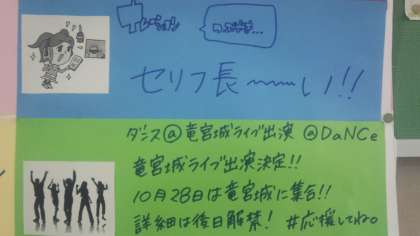 セリフ長〜〜い!!
ダンス@竜宮城ライブ出演 @DaNCe
竜宮城ライブ出演決定!!
10月28日は竜宮城に集合!!
詳細は後日解禁! #応援してね。